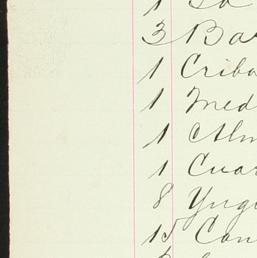 1
3 Bar
1 Criba
1 Med
1 Alm
1 Cuar
8 Yugu
15 Con